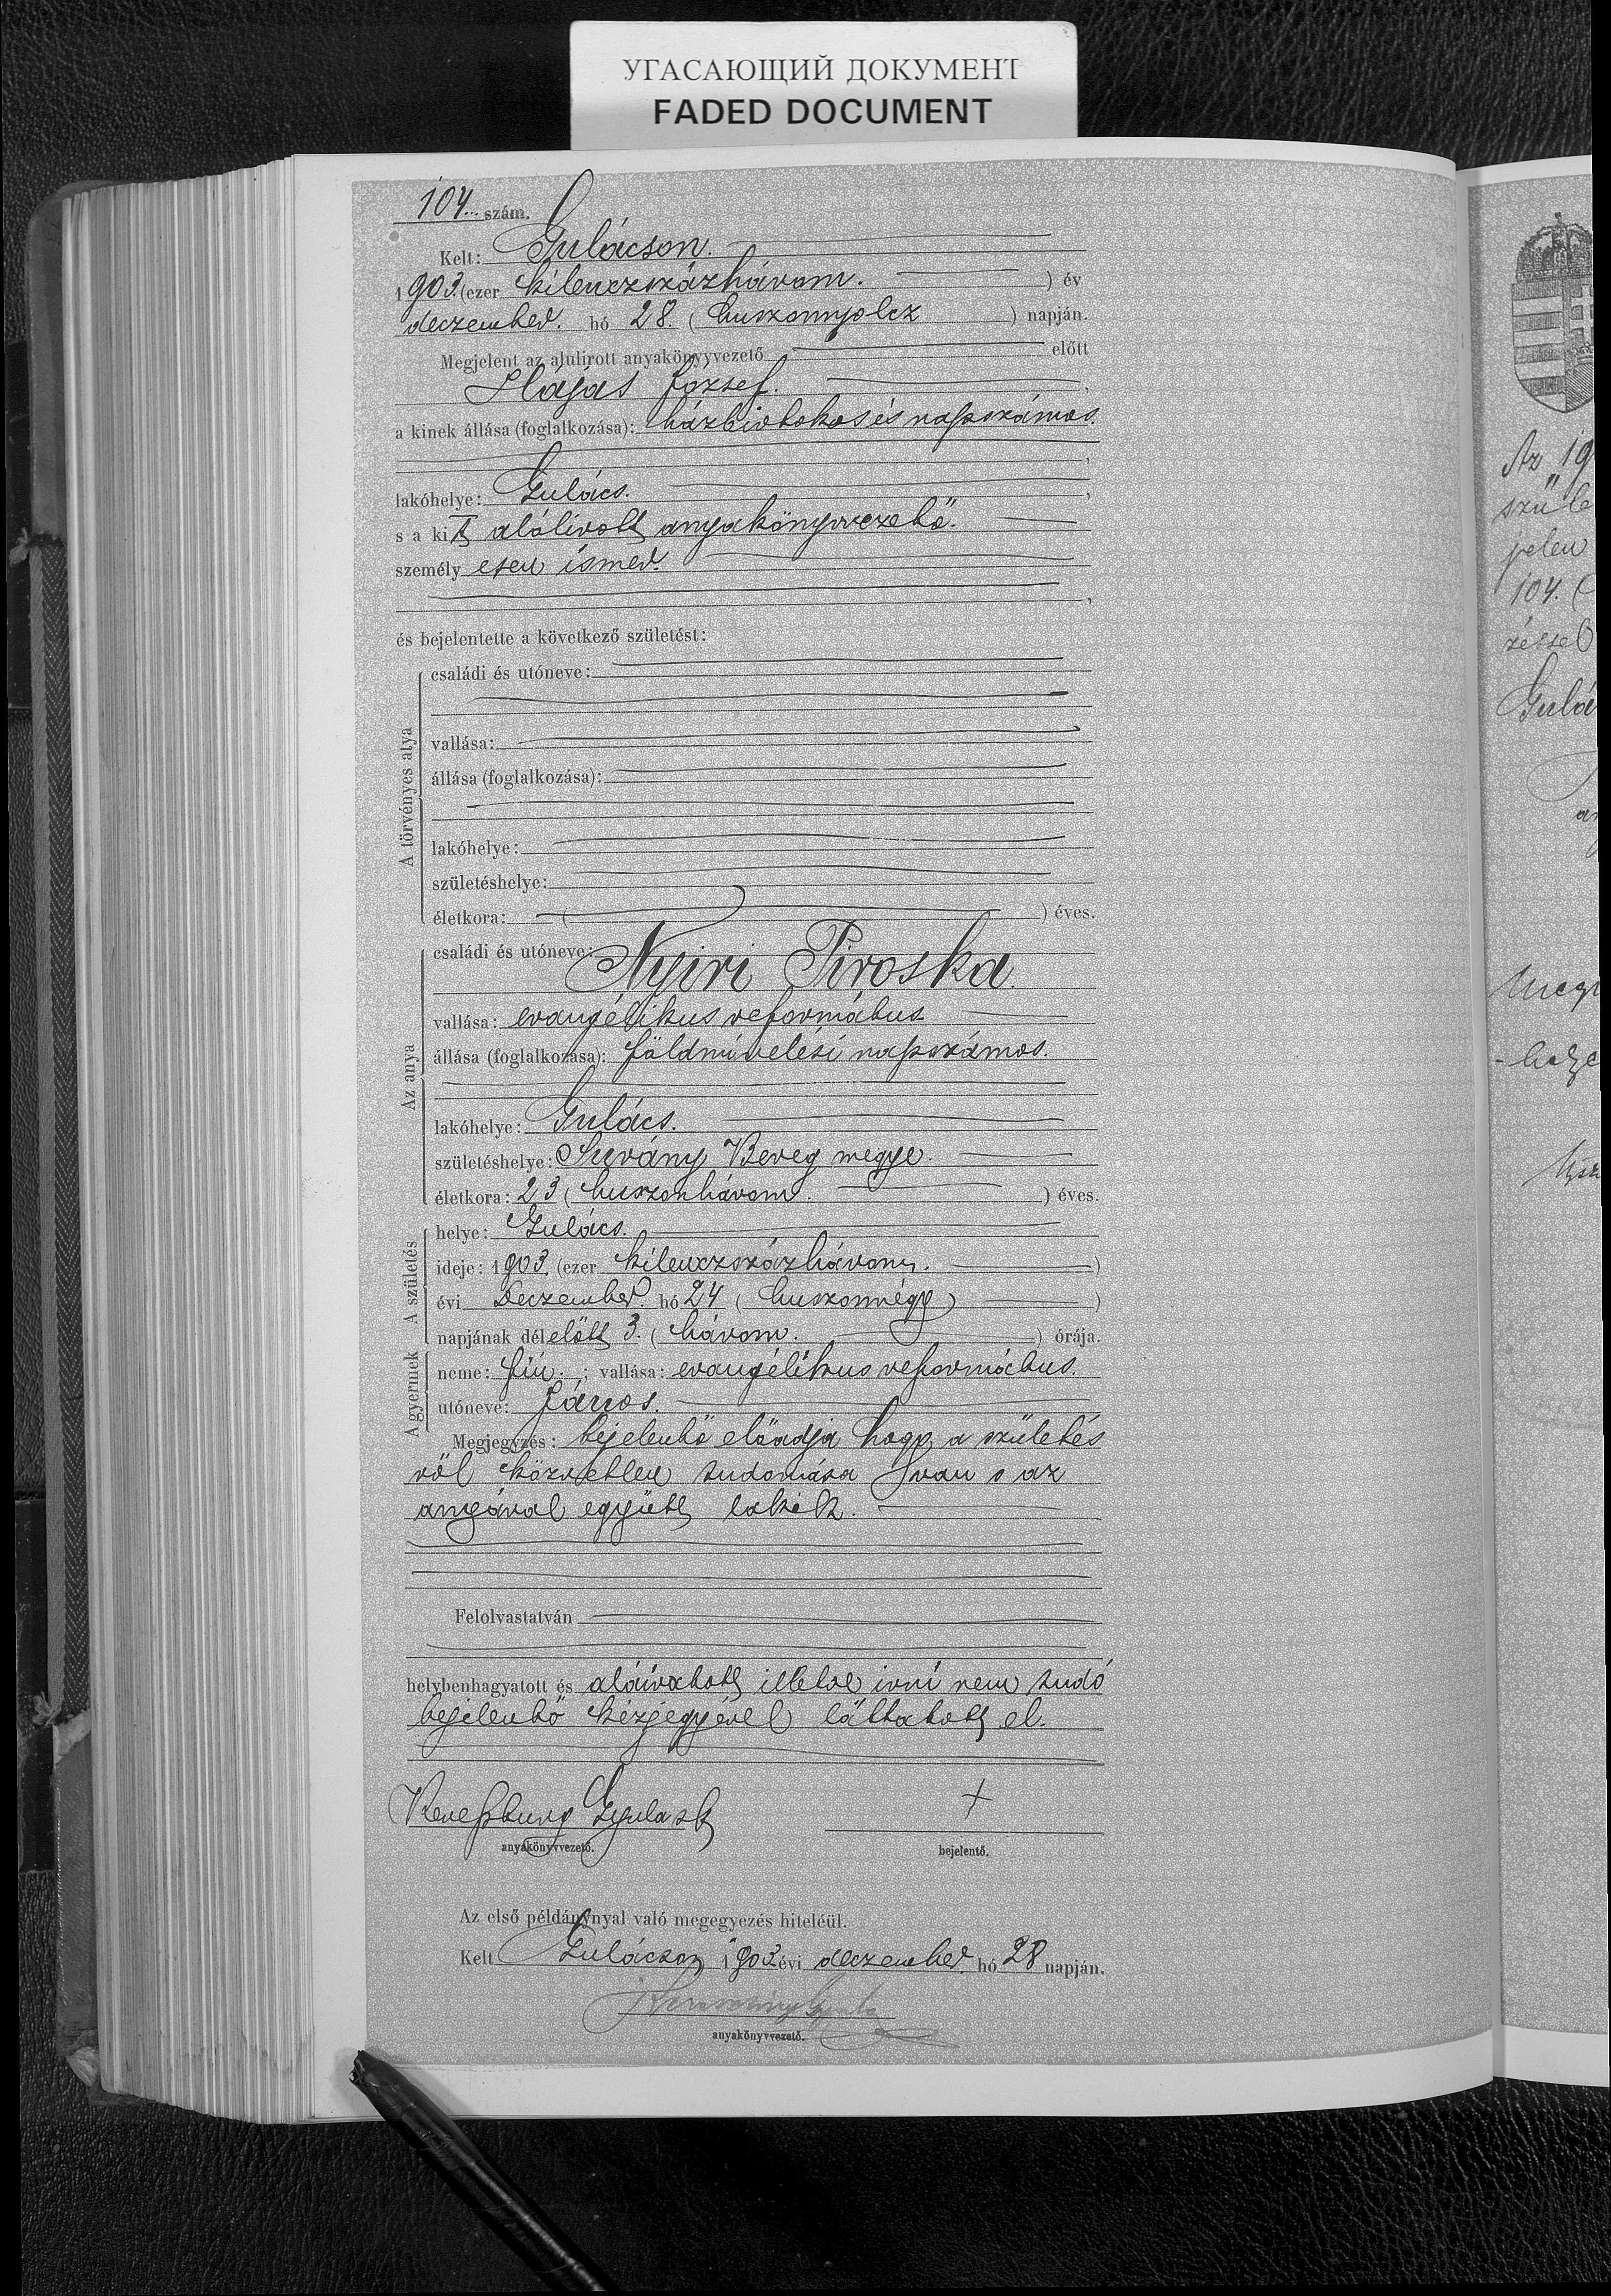 УГАСАЮЩИЙ ДОКУМЕНТ
FADED DOCUMENT
104. szám.
Kelt: Gulácson.
1903. (ezer kilenczszázhárom. ) év
deczember. hó 28. ( huszonnyolcz ) napján.
Megjelent az alulirott anyakönyvvezető előtt
Hájas József.
a kinek állása (foglalkozása): házbirtokos és napszámos.
lakóhelye: Gulács.
s a kit alólirott anyakönyvvezető
személyesen ismer.
és bejelentette a következő születést:
A törvényes atya
családi és utóneve:
vallása:
állása (foglalkozása):
lakóhelye:
születéshelye:
életkora: ( ) éves.
Az anya
családi és utóneve:
Nyiri Piroska.
vallása: evangélikus református
állása (foglalkozása): földmüvelési napszámos.
lakóhelye: Gulács.
születéshelye: Surány Bereg megye.
életkora: 23 ( huszonhárom. ) éves.
A születés
helye: Gulács.
ideje: 1903. (ezer kilenczszázhárom. )
évi Deczember. hó 24 ( huszonnégy )
napjának délelőtt 3. ( három. ) órája.
A gyermek
neme: fiú. ; vallása: evangélikus református.
utóneve: János.
Megjegyzés: bejelentő előadja hogy a születés
ről közvetlen tudomása van s az
anyával együtt lakik.
Felolvastatván
helybenhagyatott és aláiratott illetve irni nem tudó
bejelentő kézjegyével láttatott el.
Gyula sk +
anyakönyvvezető. bejelentő.
Az első példánynyal való megegyezés hiteléül.
Kelt Gulácson 1903 évi deczember. hó 28 napján.
Gyula
anyakönyvvezető.
Az 19
szüle
jelen
104. (
zéssel
Gulá